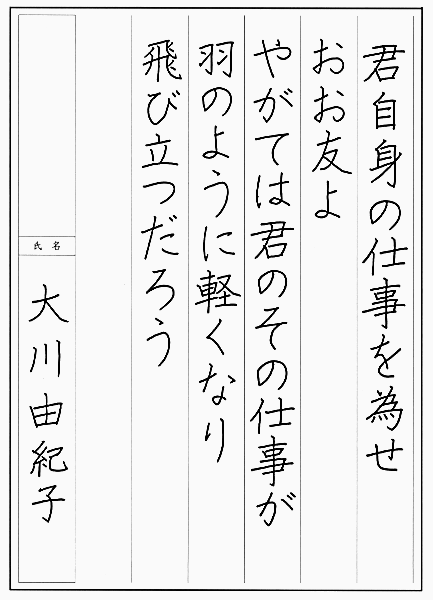 君自身の仕事を為せ
おお友よ
やがては君のその仕事が
羽のように軽くなり
飛び立つだろう
氏名
大川由紀子